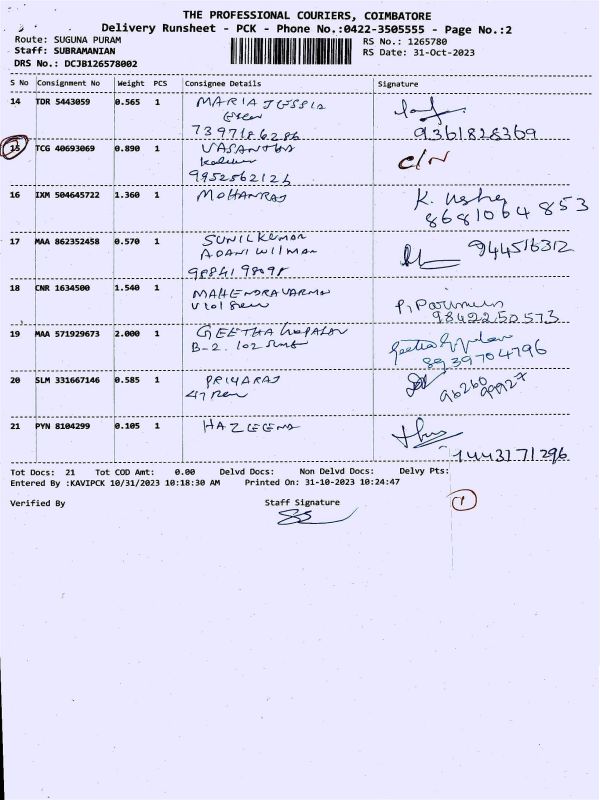 THE PROFESSIONAL COURIERS, COIMBATORE
Delivery Runsheet - PCK - Phone No.:0422-3505555 - Page No.:2
Route: SUGUNA PURAM
RS No.: 1265780
Staff: SUBRAMANIAN
RS Date: 31-Oct-2023
DRS No.: DCJB126578002
S No Consignment No Weight PCS Consignee Details Signature
14 TDR 5443059 0.565 1 MARIA JESSIA
7397186286 9361828369
15 TCG 40693069 0.890 1 VASANTHA C/N
9952562125
16 IXM 504645722 1.360 1 MOHANRAJ K. Usha
8681064853
17 MAA 862352458 0.570 1 SUNILKUMAR 944516312
ADANI WILMAR
9884198098
18 CNR 1634500 1.540 1 MAHENDRAVARMA
9842250573
19 MAA 571929673 2.000 1 GEETHA GOPALAN
B-2. 102 8939704796
20 SLM 331667146 0.585 1 PRIYARAJ
47
21 PYN 8104299 0.105 1 HAZEENA
1443171296
Tot Docs: 21 Tot COD Amt: 0.00 Delvd Docs: Non Delvd Docs: Delvy Pts:
Entered By :KAVIPCK 10/31/2023 10:18:30 AM Printed On: 31-10-2023 10:24:47
Verified By Staff Signature 1